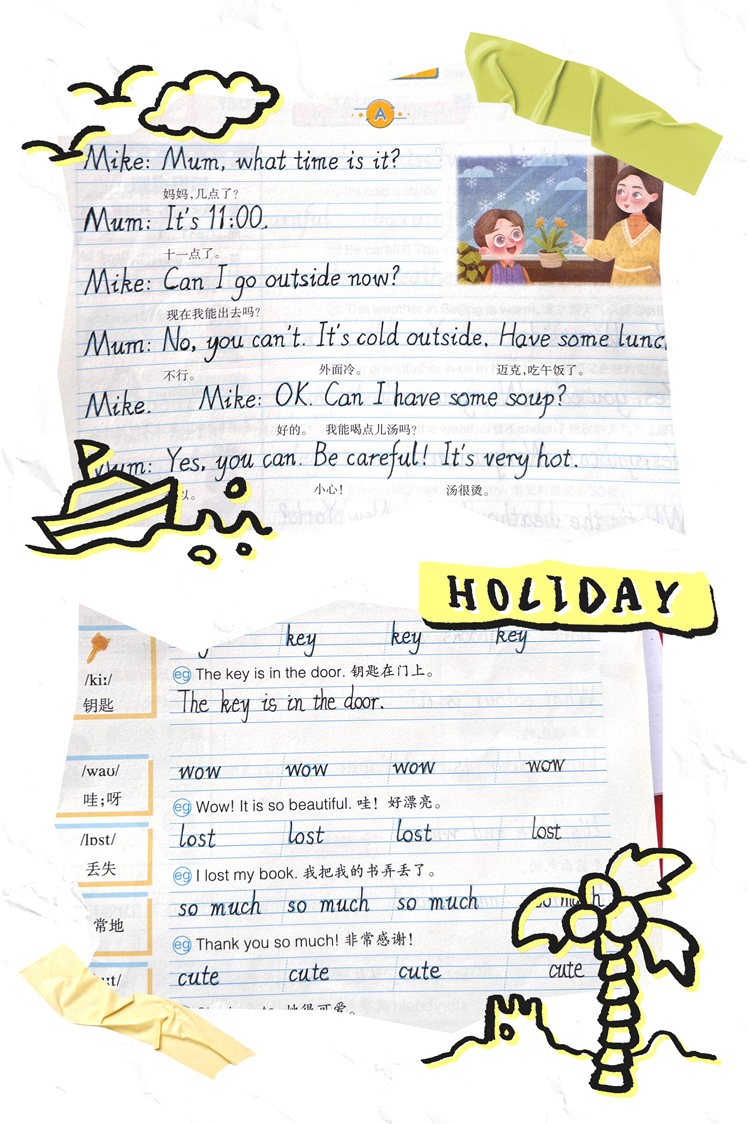 A
Mike: Mum, what time is it?
妈妈,几点了?
Mum: It's 11:00.
十一点了。
Mike: Can I go outside now?
现在我能出去吗?
Mum: No, you can't. It's cold outside. Have some
不行。 外面冷。 迈克,吃午饭了。
Mike. Mike: OK. Can I have some soup?
好的。 我能喝点儿汤吗?
Mum: Yes, you can. Be careful! It's very hot.
小心! 汤很烫。
HOLIDAY
key key key
/kiː/
钥匙
eg The key is in the door. 钥匙在门上。
The key is in the door.
/waʊ/
哇;呀
wow wow wow wow
eg Wow! It is so beautiful. 哇! 好漂亮。
/lɒst/
丢失
lost lost lost lost
eg I lost my book. 我把我的书弄丢了。
常地
so much so much so much so much
eg Thank you so much! 非常感谢!
cute cute cute cute